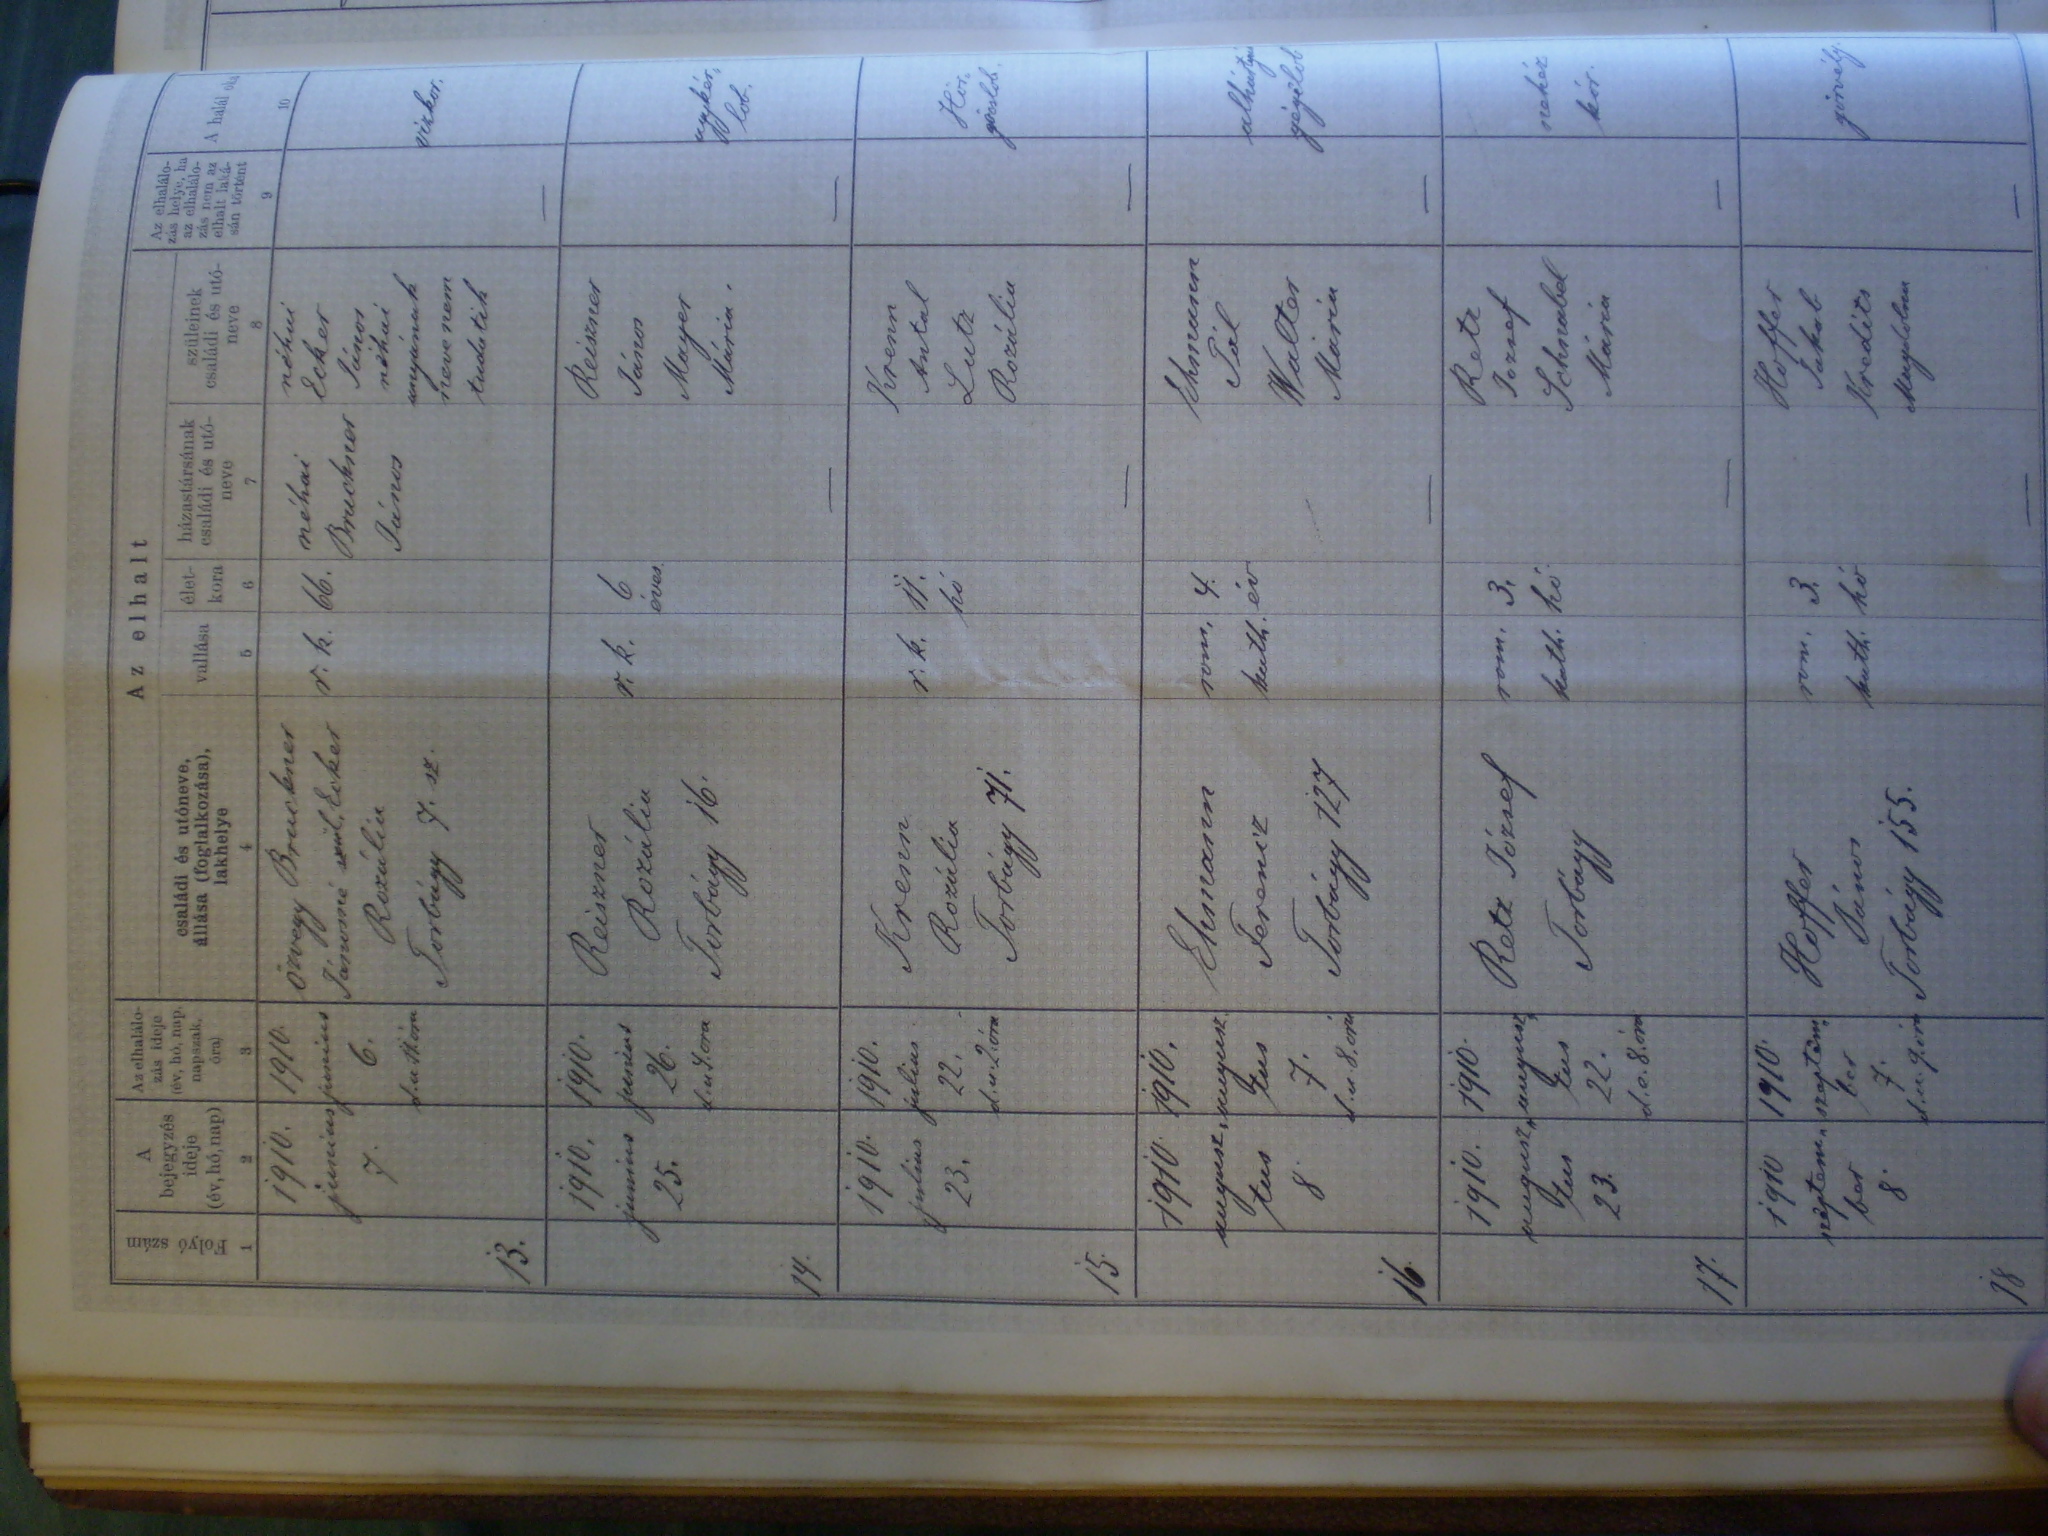 Az elhalt
Folyó szám
A
bejegyzés
ideje
(év, hó, nap)
Az elhalálo-
zás ideje
(év, hó, nap,
napszak,
óra)
családi és utóneve,
állása (foglalkozása),
lakhelye
vallása
élet-
kora
házastársának
családi és utó-
neve
szüleinek
családi és utó-
neve
Az elhalálo-
zás helye, ha
az elhalálo-
zás nem az
elhalt laká-
sán történt
A halál oka
1
2
3
4
5
6
7
8
9
10
13.
1910.
junius
7.
1910.
junius
6.
d.u. 11 óra
özvegy Bruckner
Jánosné szül. Ecker
Rozália
Torbágy 7. sz.
r. k.
66.
néhai
Bruckner
János
néhai
Ecker
János
néhai
anyának
neve nem
tudatik
—
vizkór.
14.
1910.
junius
25.
1910.
junius
26.
Reiszner
Rozália
Torbágy 16.
r. k.
6
éves.
—
Reiszner
János
Mayer
Mária.
—
lob.
15.
1910.
julius
23.
1910.
julius
22.
d.u. 2. óra
Krenn
Rozália
Torbágy 71.
r. k.
11.
hó
—
Krenn
Antal
Lutz
Rozália
—
16.
1910.
augusz-
tus
8.
1910.
augusz-
tus
7.
d.u. 8. óra
Ehmann
Ferencz
Torbágy 127
rom.
kath.
4.
év
—
Ehmann
Pál
Walter
Mária
—
gégelob
17.
1910.
augusz-
tus
23.
1910.
augusz-
tus
22.
d.e. 8. óra
Retz József
Torbágy
rom.
kath.
3.
hó.
—
Retz
József
Schnabel
Mária
—
nehéz
kór.
18
1910
szeptem-
ber
8.
1910.
szeptem-
ber
7.
d.u. 9. óra
Hoffer
János
Torbágy 155.
rom.
kath.
3.
hó
—
Hoffer
Jakab
Magdolna
—
görvély.